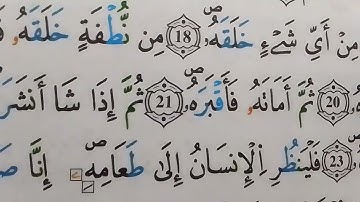 مِنْ أَيِّ شَےْءٍ خَلَقَهُۥۖ 18 مِن نُّطْفَةٍ خَلَقَهُۥ
20 ثُمَّ أَمَاتَهُۥ فَأَقْبَرَهُۥۖ 21 ثُمَّ إِذَا شَا أَنشَرَ
23 فَلْيَنظُرِ اِ۬لْإِنسَانُ إِلَىٰ طَعَامِهِۦۖ إِنَّا